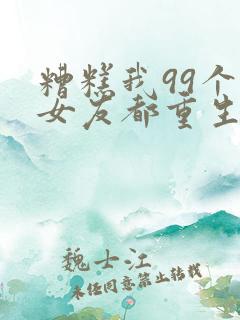 糟糕我99个
女友都重生
魏士江
未经同意禁止转载